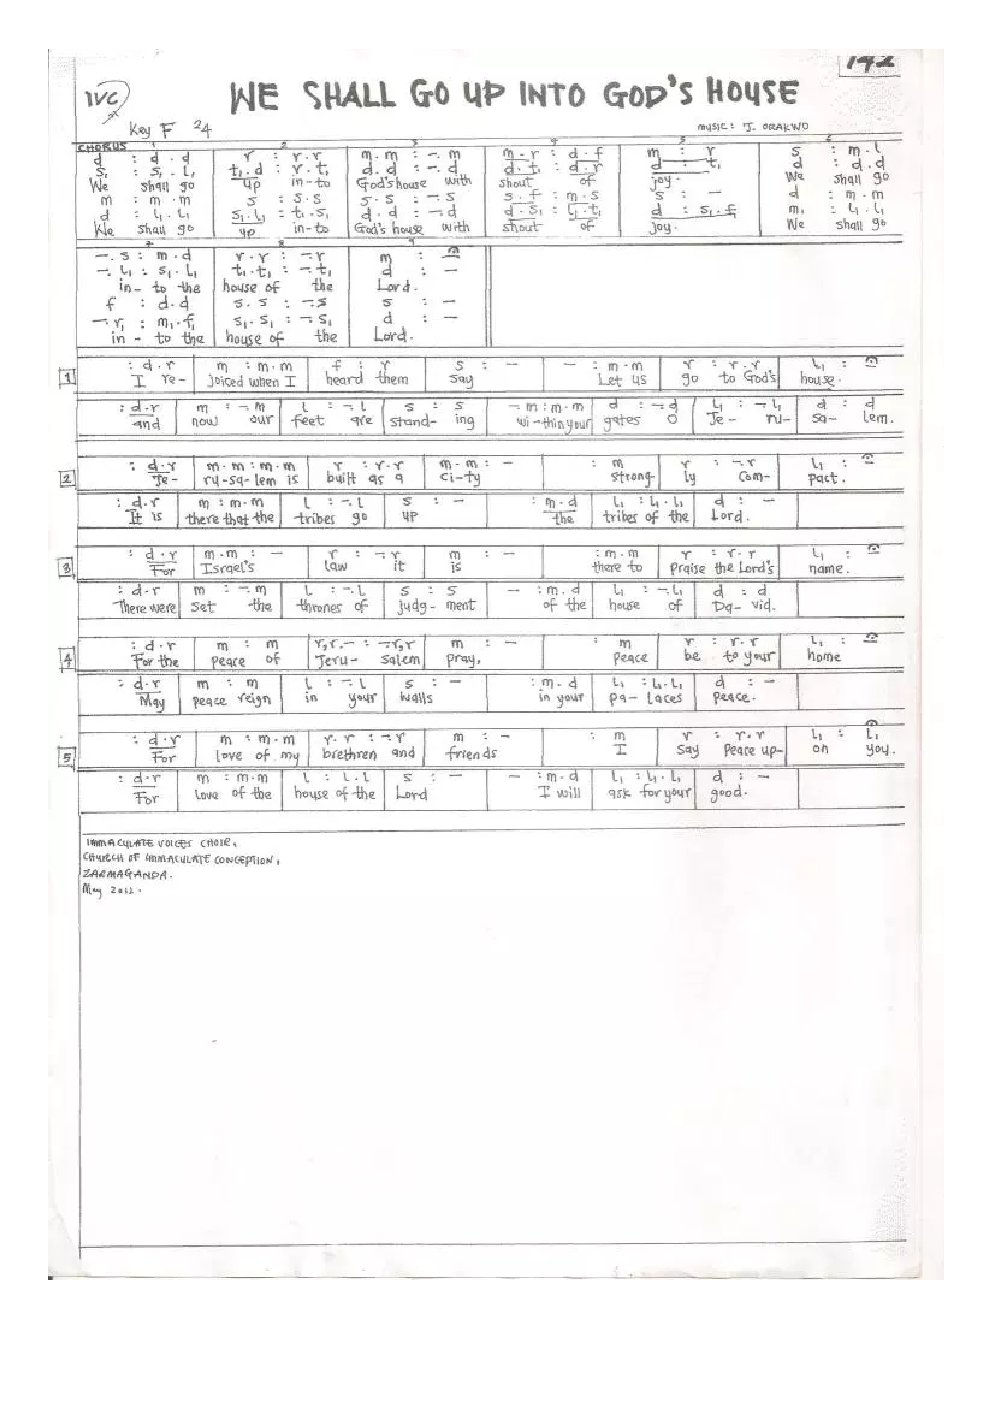 142
IVC
WE SHALL GO UP INTO GOD'S HOUSE
Key F 2/4
MUSIC: J. ORAKWO
CHORUS 1 2 3 4 5 6
d : d . d | r : r . r | m . m : - . m | m . r : d . f | m : r | s : m . l
s₁ : s₁ . l₁ | t₁ . d : r . t₁ | d . d : - . d | d . t₁ : d . r | d : t₁ | d : d . d
We shall go up in-to God's house with shout of joy. We shall go
m : m . m | s : s . s | s . s : - . s | s . f : m . s | s : - | d : m . m
d : l₁ . l₁ | s₁ . l₁ : t₁ . s₁ | d . d : - . d | d . s₁ : l₁ . t₁ | d : s₁ . f₁ | m₁ : l₁ . l₁
We shall go up in-to God's house with shout of joy. We shall go
7 8 9
- . s : m . d | r . r : - . r | m : -
- . l₁ : s₁ . l₁ | t₁ . t₁ : - . t₁ | d : -
in - to the house of the Lord.
f : d . d | s . s : - . s | s : -
- . r₁ : m₁ . f₁ | s₁ . s₁ : - . s₁ | d : -
in - to the house of the Lord.
1 : d . r | m : m . m | f : r | s : - | - : m . m | r : r . r | l₁ : -
I re- joiced when I heard them say Let us go to God's house.
: d . r | m : - . m | l : - . l | s : s | - . m : m . m | d : - . d | l₁ : - . l₁ | d : d
and now our feet are stand- ing wi-thin your gates O Je- ru- sa- lem.
2 : d . r | m . m : m . m | r : r . r | m . m : - | : m | r : - . r | l₁ : -
Je- ru-sa-lem is built as a ci-ty strong- ly com- pact.
: d . r | m : m . m | l : - . l | s : - | : m . d | l₁ : l₁ . l₁ | d : -
It is there that the tribes go up the tribes of the Lord.
3 : d . r | m . m : - | r : - . r | m : - | : m . m | r : r . r | l₁ : -
For Israel's law it is there to praise the Lord's name.
: d . r | m : - . m | l : - . l | s : s | - : m . d | l₁ : - . l₁ | d : d
There were set the thrones of judg- ment of the house of Da- vid.
4 : d . r | m : m | r, r . - : - . r, r | m : - | : m | r : r . r | l₁ : -
For the peace of Jeru- salem pray, Peace be to your home
: d . r | m : m | l : - . l | s : - | : m . d | l₁ : l₁ . l₁ | d : -
May peace reign in your walls in your pa- laces peace.
5 : d . r | m : m . m | r . r : - . r | m : - | : m | r : r . r | l₁ : l₁
For love of my brethren and friends I say Peace up- on you.
: d . r | m : m . m | l : l . l | s : - | - : m . d | l₁ : l₁ . l₁ | d : -
For love of the house of the Lord I will ask for your good.
IMMACULATE VOICES CHOIR,
CHURCH OF IMMACULATE CONCEPTION,
ZARMAGANDA.
May 2012.